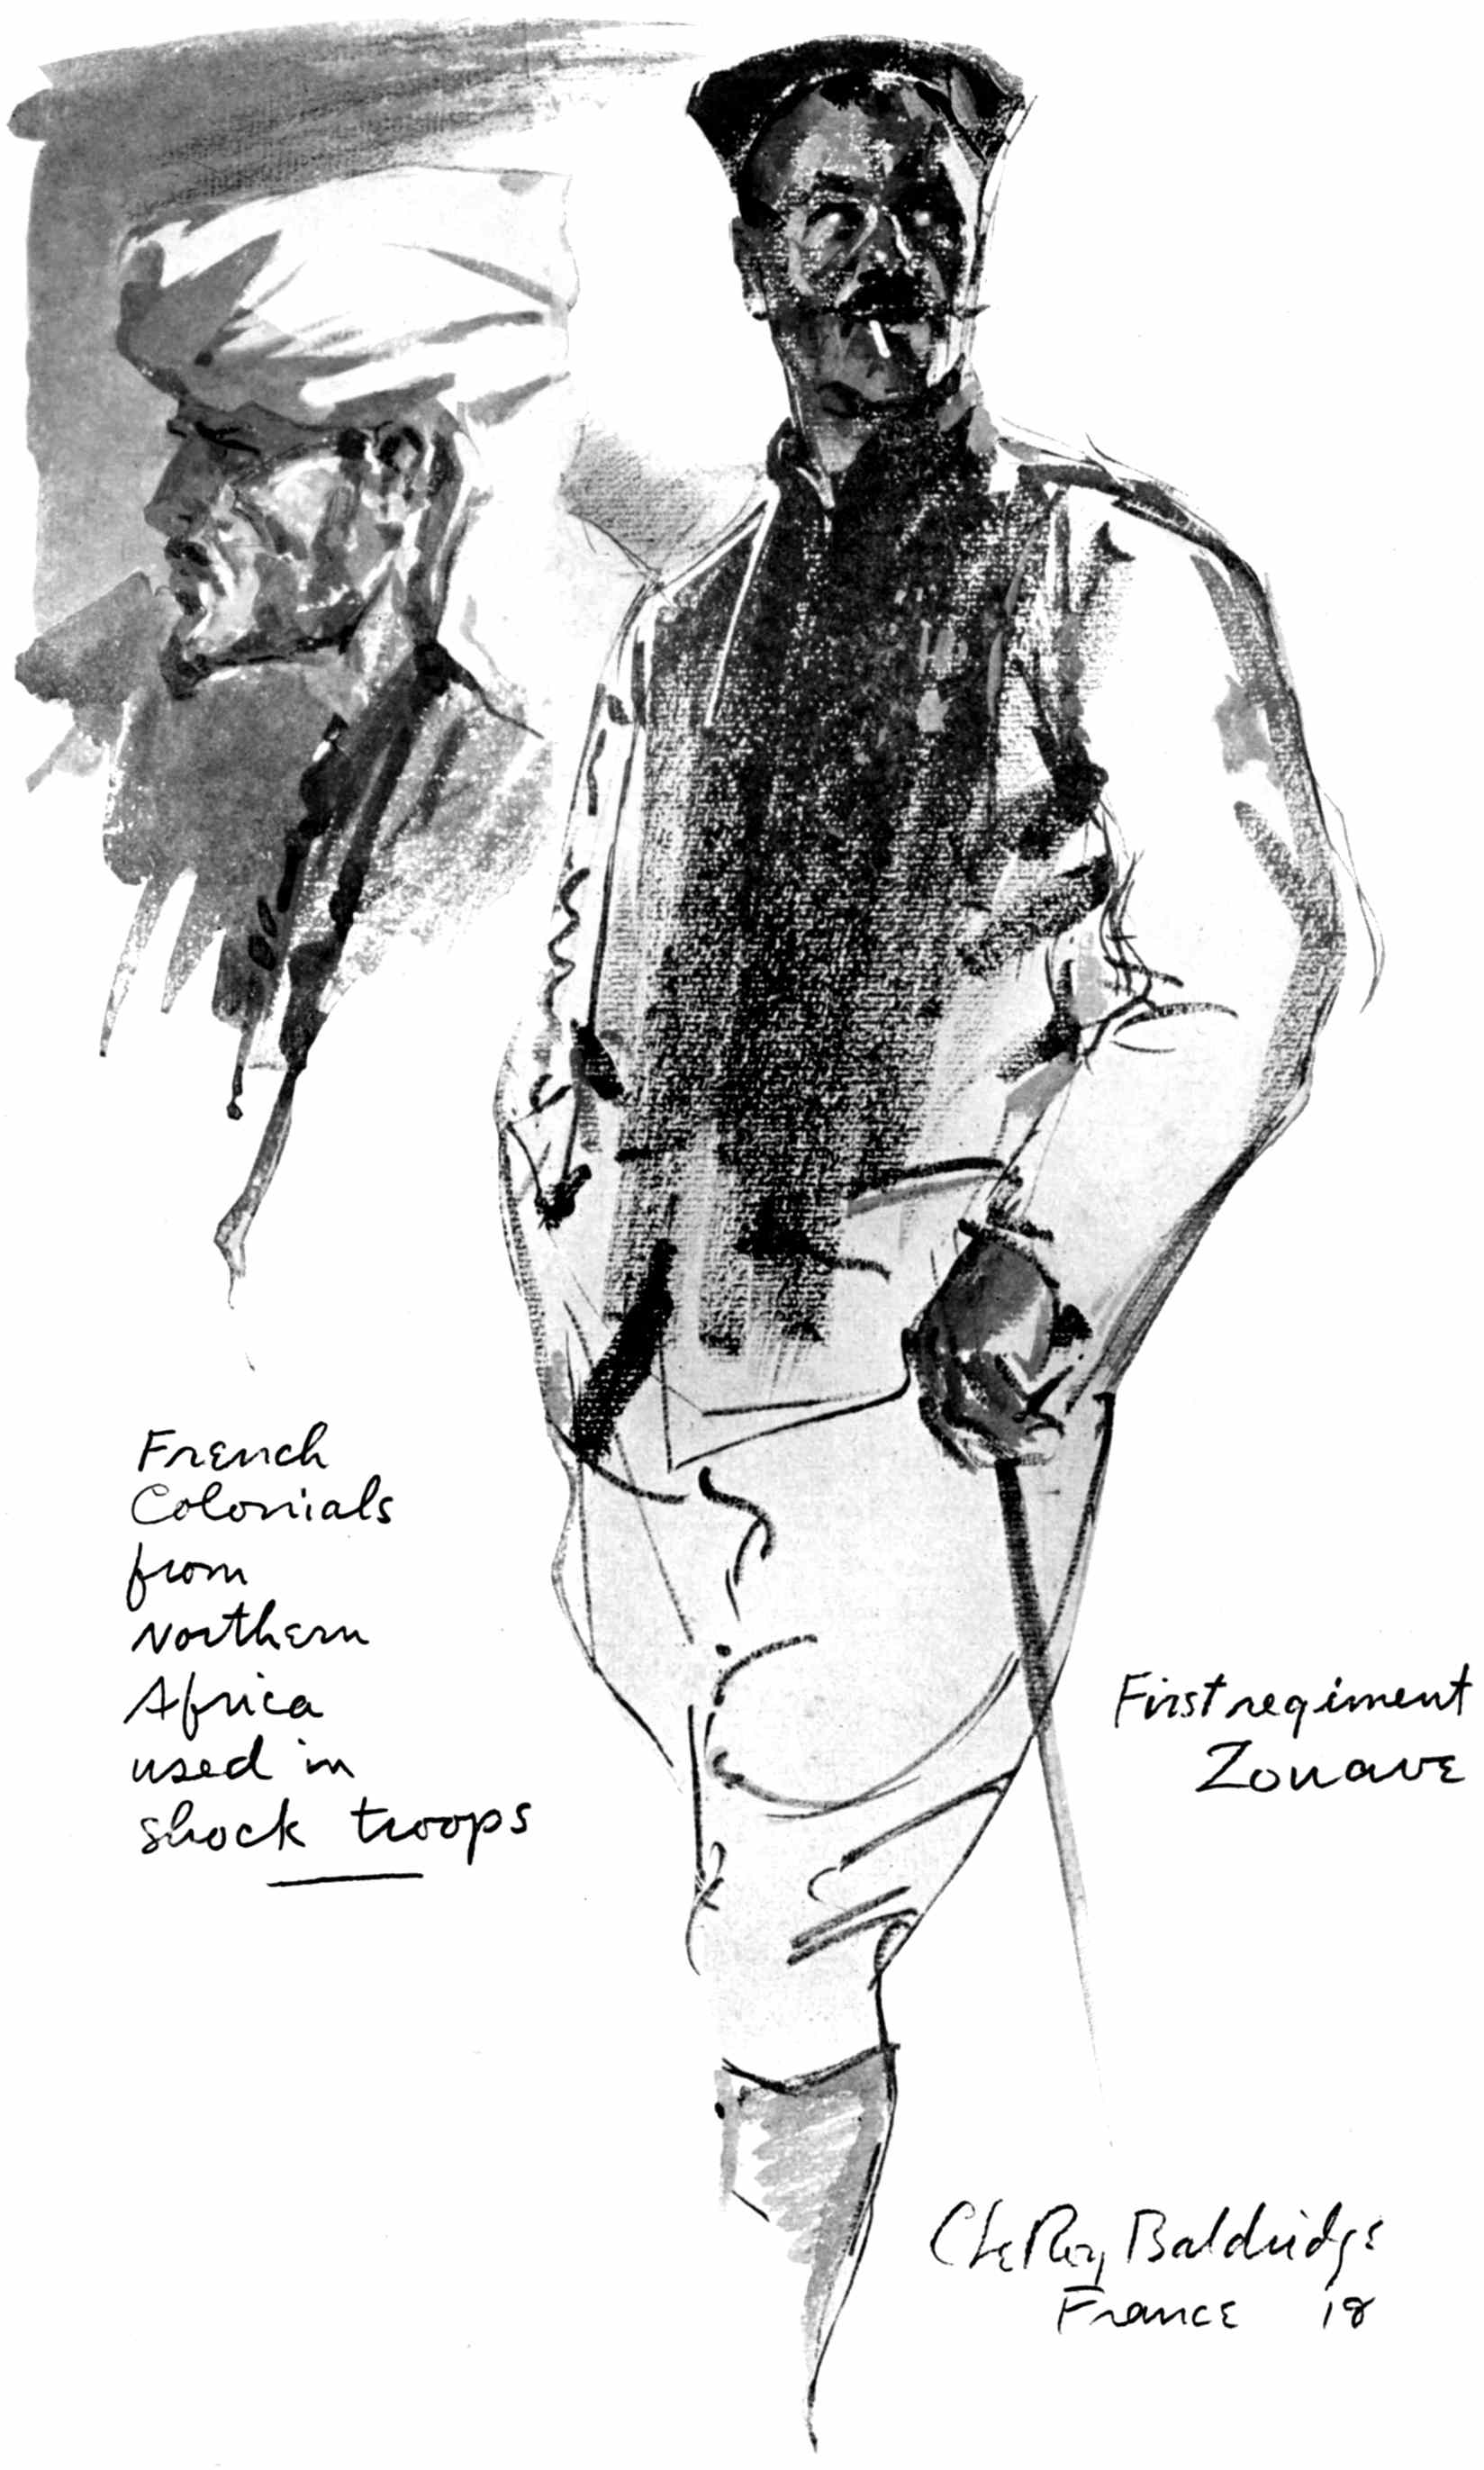 French
Colonials
from
Northern
Africa
used in
shock troops
First regiment
Zouave
CLeRoy Baldridge
France 18